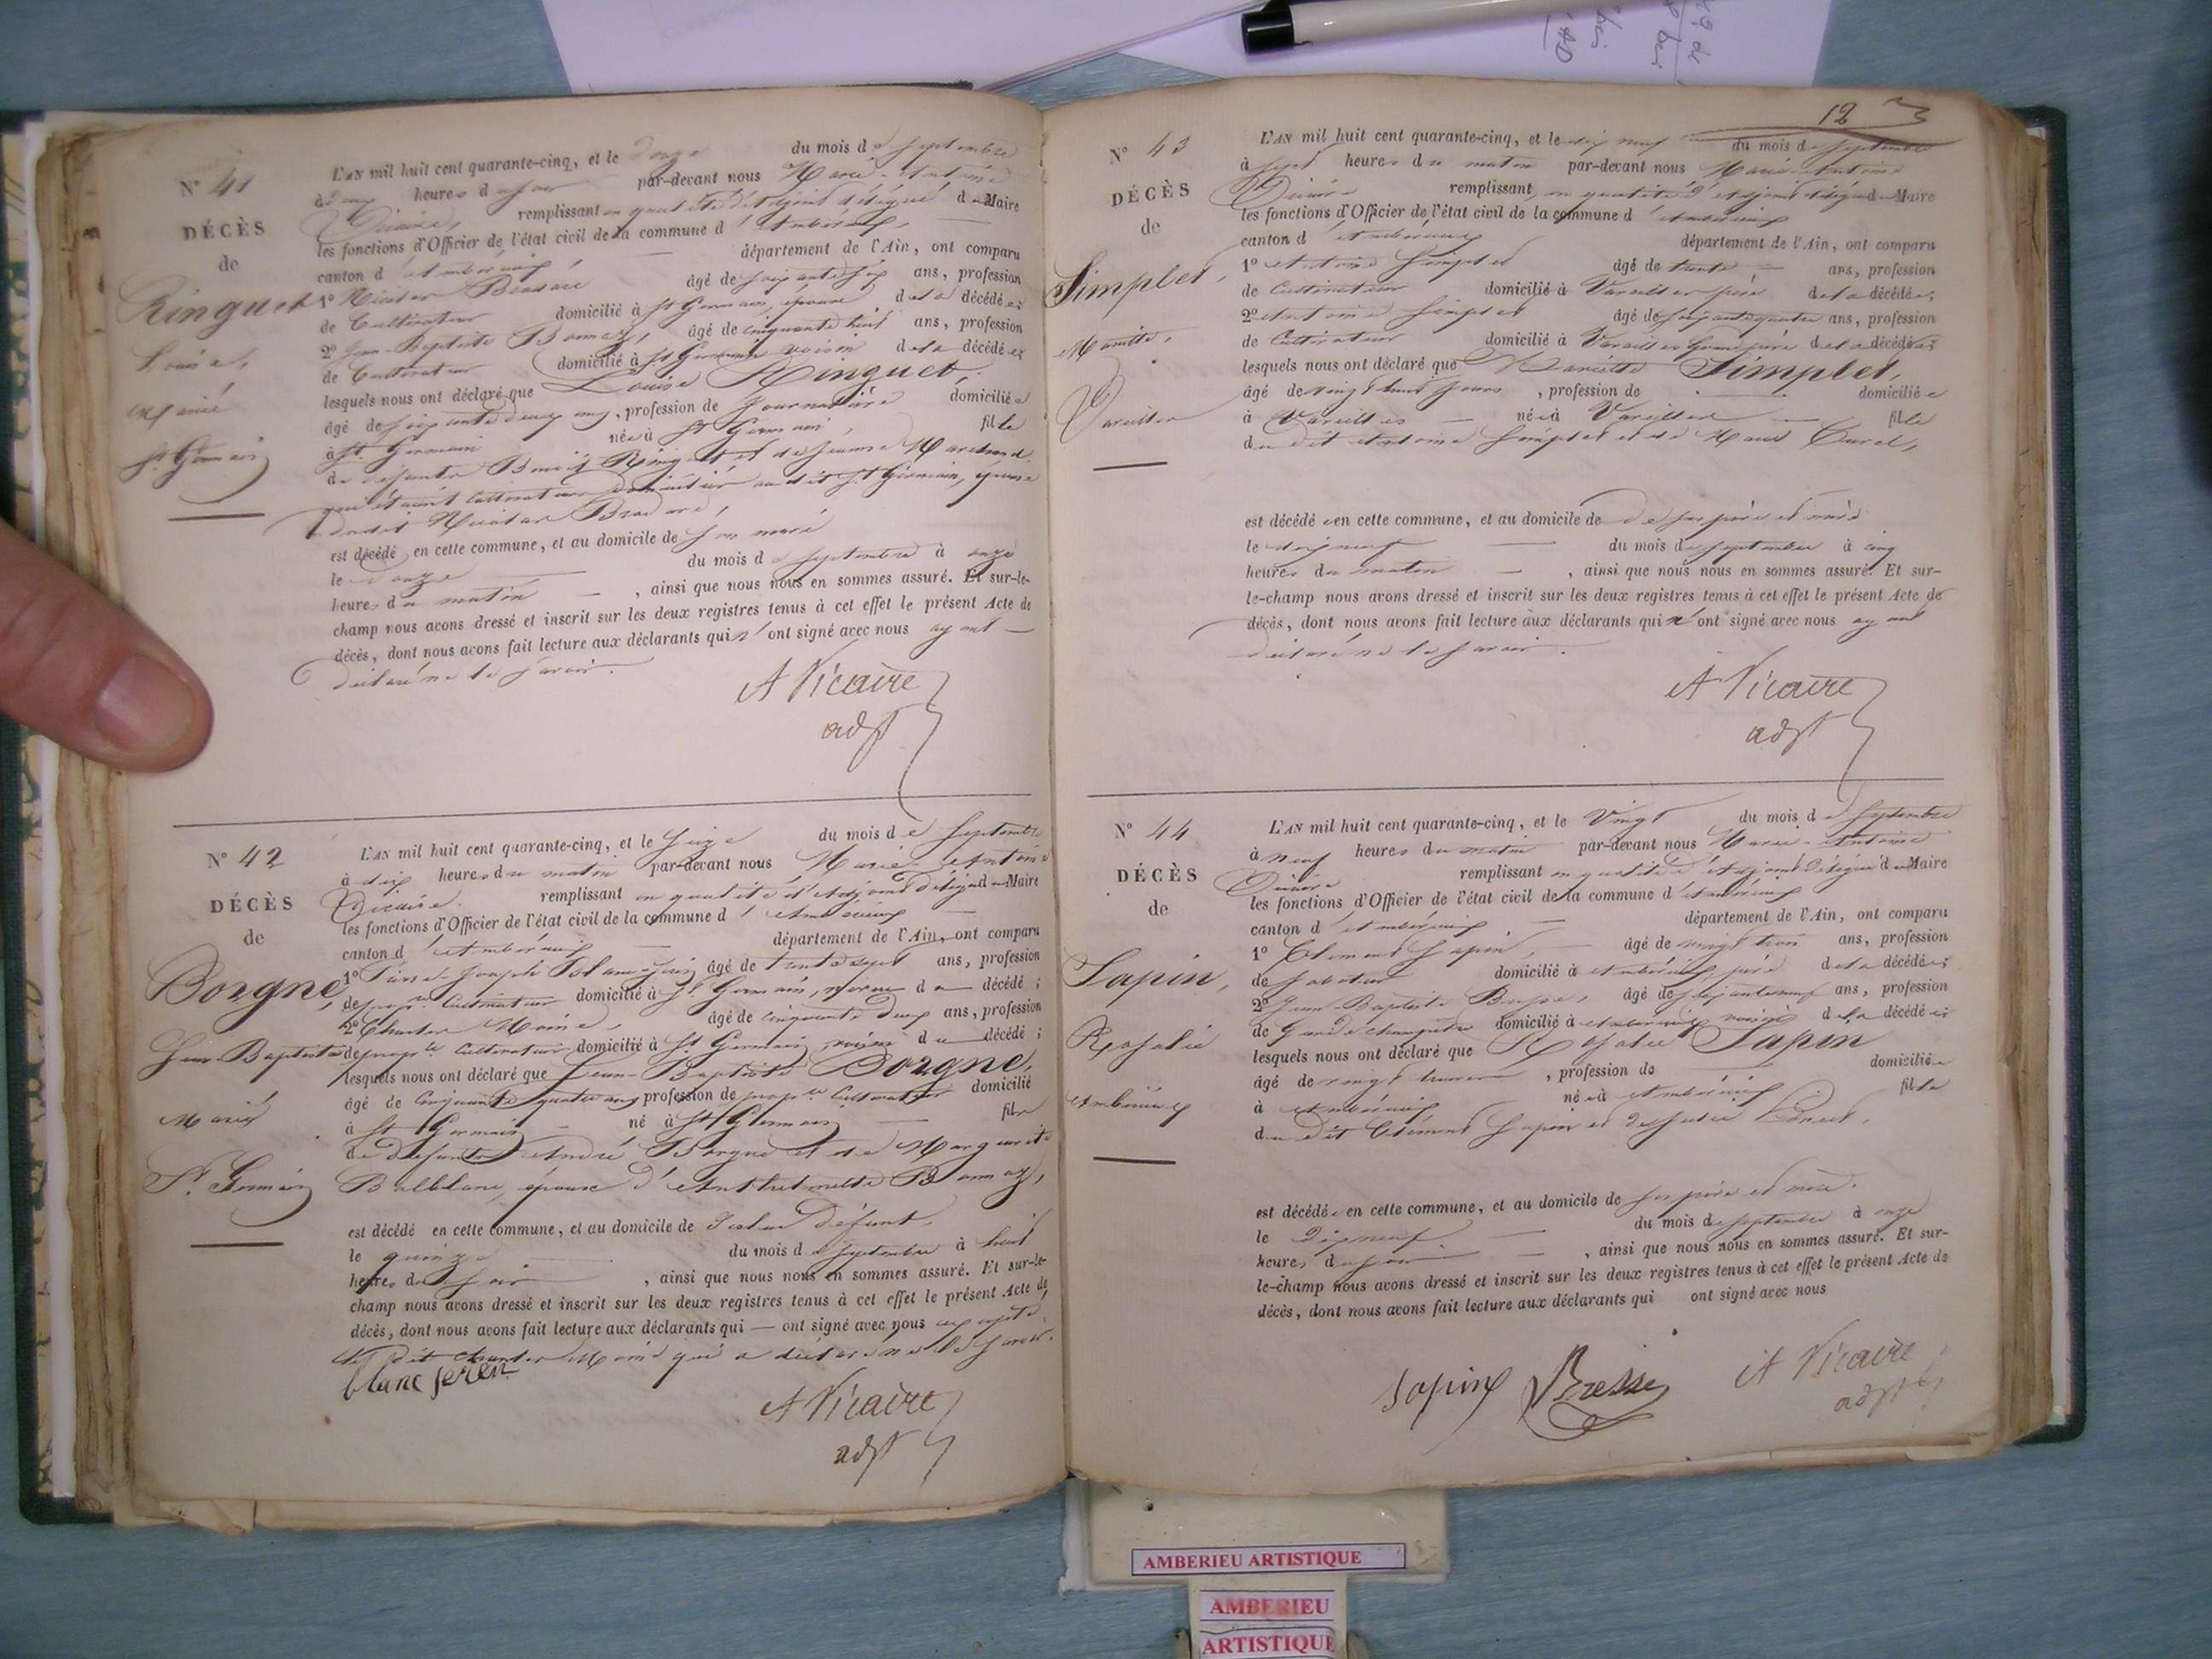 N° 41
DÉCÈS
de
Ringuet
Louise,
mariée
St Germain
L'AN mil huit cent quarante-cinq, et le douze du mois de septembre
à deux heures du soir par-devant nous Marie-Antoine
Vicaire, remplissant en qualité d'adjoint délégué du Maire
les fonctions d'Officier de l'état civil de la commune d'Ambérieux,
canton d'Ambérieux département de l'Ain, ont comparu
1° Nicolas Brodare âgé de soixante six ans, profession
de Cultivateur domicilié à St Germain, époux de la décédée;
2° Jean-Baptiste Bonnaz, âgé de cinquante huit ans, profession
de Cultivateur domicilié à St Germain voisin de la décédée;
lesquels nous ont déclaré que Louise Ringuet,
âgé de soixante deux ans, profession de Journalière domiciliée
à St Germain née à St Germain, fille
de défunts Ringuet et de Jeanne Marchand
qui étaient cultivateurs domiciliés au dit St Germain, épouse
dudit Nicolas Brodare,
est décédé en cette commune, et au domicile de son mari
le douze du mois de septembre à onze
heures du matin , ainsi que nous nous en sommes assuré. Et sur-le-
champ nous avons dressé et inscrit sur les deux registres tenus à cet effet le présent Acte de
décès, dont nous avons fait lecture aux déclarants qui n'ont signé avec nous ayant
déclaré ne le savoir.
A Vicaire
adjt
N° 42
DÉCÈS
de
Borgne,
Jean-Baptiste
Marié
St Germain
L'AN mil huit cent quarante-cinq, et le seize du mois de septembre
à dix heures du matin par-devant nous Marie-Antoine
Vicaire. remplissant en qualité d'adjoint délégué du Maire
les fonctions d'Officier de l'état civil de la commune d'Ambérieux
canton d'Ambérieux département de l'Ain, ont comparu
1° Joseph âgé de trente sept ans, profession
de propre Cultivateur domicilié à St Germain, du décédé;
2° Charles Moine, âgé de cinquante deux ans, profession
de propre Cultivateur domicilié à St Germain voisin du décédé;
lesquels nous ont déclaré que Jean-Baptiste Borgne,
âgé de cinquante quatre ans profession de propre Cultivateur domicilié
à St Germain né à St Germain fils
de défunts André Borgne et de Marguerite
Balblanc, époux d'Anthelmette Bonnaz,
est décédé en cette commune, et au domicile de défunt,
le quinze du mois de septembre à huit
heures du soir , ainsi que nous nous en sommes assuré. Et sur-le-
champ nous avons dressé et inscrit sur les deux registres tenus à cet effet le présent Acte de
décès, dont nous avons fait lecture aux déclarants qui — ont signé avec nous excepté
le dit Charles Moine qui a déclaré ne le savoir.
blanc
A Vicaire
adjt
12
N° 43
DÉCÈS
de
Simplet,
Mariette,
Vareilles
L'AN mil huit cent quarante-cinq, et le dix neuf du mois de septembre
à sept heures du matin par-devant nous Marie-Antoine
Vicaire remplissant, en qualité d'adjoint délégué du Maire
les fonctions d'Officier de l'état civil de la commune d'Ambérieux
canton d'Ambérieux département de l'Ain, ont comparu
1° Antoine Simplet âgé de trente — ans, profession
de Cultivateur domicilié à Vareilles père de la décédée;
2° Antoine Simplet âgé de soixante quatre ans, profession
de Cultivateur domicilié à Vareilles Grand père de la décédée;
lesquels nous ont déclaré que Mariette Simplet,
âgé de vingt huit jours , profession de domiciliée
à Vareilles — née à Vareilles — fille
du dit Antoine Simplet et de Marie Curel,
est décédée en cette commune, et au domicile de de ses père et mère
le dix neuf du mois de septembre à cinq
heures du matin , ainsi que nous nous en sommes assuré. Et sur-
le-champ nous avons dressé et inscrit sur les deux registres tenus à cet effet le présent Acte de
décès, dont nous avons fait lecture aux déclarants qui n'ont signé avec nous ayant
déclaré ne le savoir.
A Vicaire
adjt
N° 44
DÉCÈS
de
Sapin,
Rosalie
Ambérieux
L'AN mil huit cent quarante-cinq, et le Vingt du mois de septembre
à neuf heures du matin par-devant nous Marie-Antoine
Vicaire remplissant en qualité d'adjoint délégué du Maire
les fonctions d'Officier de l'état civil de la commune d'Ambérieux
canton d'Ambérieux département de l'Ain, ont comparu
1° Clément Sapin, âgé de vingt trois ans, profession
de sabotier domicilié à Ambérieux, père de la décédée;
2° Jean-Baptiste Bresse, âgé de soixante neuf ans, profession
de Garde champêtre domicilié à Ambérieux voisin de la décédée;
lesquels nous ont déclaré que Rosalie Sapin
âgé de vingt heures , profession de domiciliée
à Ambérieux née à Ambérieux fille
du dit Clément Sapin et de Julie
est décédée en cette commune, et au domicile de ses père et mère.
le dix neuf du mois de septembre à onze
heures du soir , ainsi que nous nous en sommes assuré. Et sur-
le-champ nous avons dressé et inscrit sur les deux registres tenus à cet effet le présent Acte de
décès, dont nous avons fait lecture aux déclarants qui ont signé avec nous
Sapin Bresse A Vicaire
adjt
AMBERIEU ARTISTIQUE
AMBERIEU
ARTISTIQUE